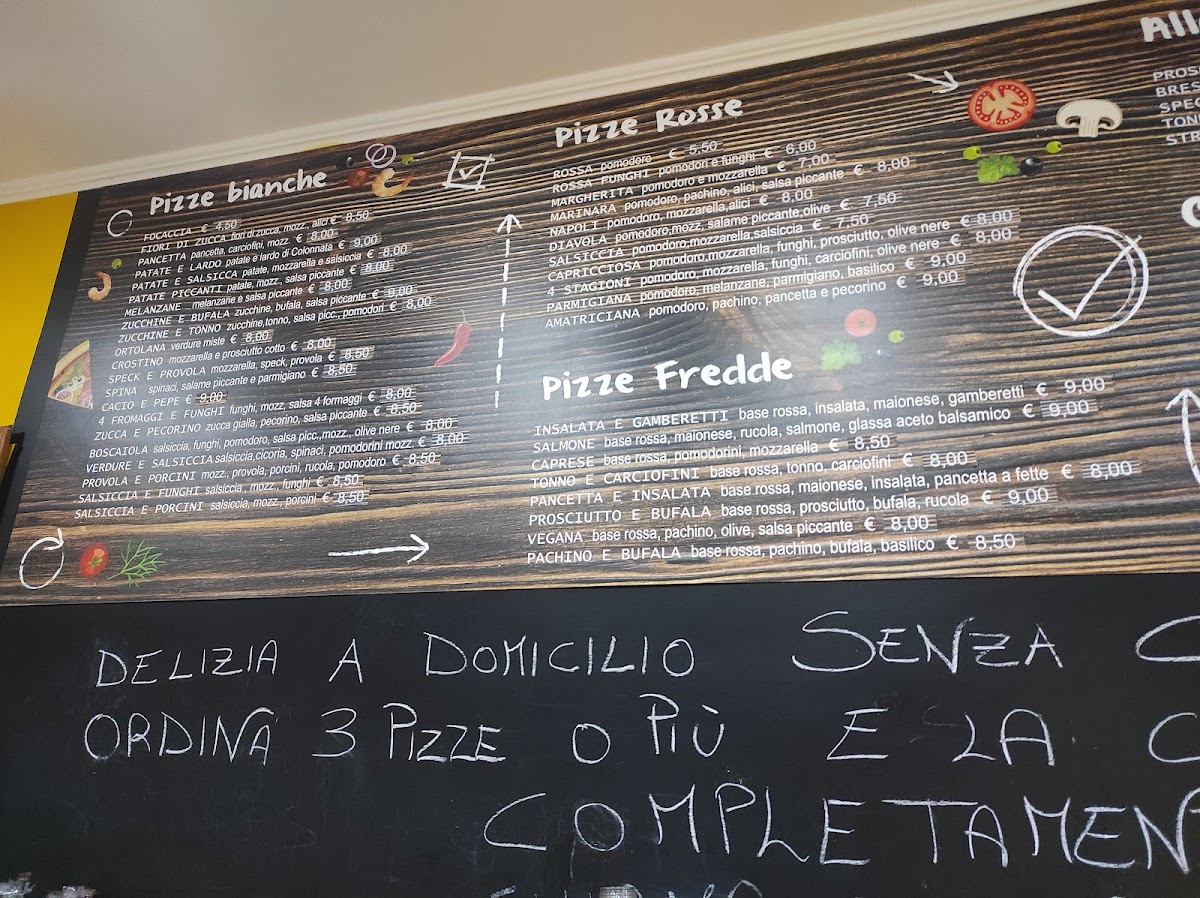 Pizze bianche
FOCACCIA € 4,50
FIORI DI ZUCCA fiori di zucca, mozz., alici € 8,50
PANCETTA pancetta, carciofini, mozz. € 8,00
PATATE E LARDO patate e lardo di Colonnata € 9,00
PATATE E SALSICCA patate, mozzarella e salsiccia € 8,00
PATATE PICCANTI patate, mozz., salsa piccante € 8,00
MELANZANE melanzane e salsa piccante € 8,00
ZUCCHINE E BUFALA zucchine, bufala, salsa piccante € 9,00
ZUCCHINE E TONNO zucchine,tonno, salsa picc., pomodori € 8,00
ORTOLANA verdure miste € 8,00
CROSTINO mozzarella e prosciutto cotto € 8,00
SPECK E PROVOLA mozzarella, speck, provola € 8,50
SPINA spinaci, salame piccante e parmigiano € 8,50
CACIO E PEPE € 9,00
4 FROMAGGI E FUNGHI funghi, mozz, salsa 4 formaggi € 8,00
ZUCCA E PECORINO zucca gialla, pecorino, salsa piccante € 8,50
BOSCAIOLA salsiccia, funghi, pomodoro, salsa picc.,mozz., olive nere € 8,00
VERDURE E SALSICCIA salsiccia,cicoria, spinaci, pomodorini mozz. € 8,00
PROVOLA E PORCINI mozz., provola, porcini, rucola, pomodoro € 8,50
SALSICCIA E FUNGHI salsiccia, mozz., funghi € 8,50
SALSICCIA E PORCINI salsiccia, mozz., porcini € 8,50
Pizze Rosse
ROSSA pomodoro € 5,50
ROSSA FUNGHI pomodori e funghi € 6,00
MARGHERITA pomodoro e mozzarella € 7,00
MARINARA pomodoro, pachino, alici, salsa piccante € 8,00
NAPOLI pomodoro, mozzarella,alici € 8,00
DIAVOLA pomodoro,mozz, salame piccante,olive € 7,50
SALSICCIA pomodoro,mozzarella,salsiccia € 7,50
CAPRICCIOSA pomodoro,mozzarella, funghi, prosciutto, olive nere € 8,00
4 STAGIONI pomodoro, mozzarella, funghi, carciofini, olive nere € 8,00
PARMIGIANA pomodoro, melanzane, parmigiano, basilico € 9,00
AMATRICIANA pomodoro, pachino, pancetta e pecorino € 9,00
Pizze Fredde
INSALATA E GAMBERETTI base rossa, insalata, maionese, gamberetti € 9,00
SALMONE base rossa, maionese, rucola, salmone, glassa aceto balsamico € 9,00
CAPRESE base rossa, pomodorini, mozzarella € 8,50
TONNO E CARCIOFINI base rossa, tonno, carciofini € 8,00
PANCETTA E INSALATA base rossa, maionese, insalata, pancetta a fette € 8,00
PROSCIUTTO E BUFALA base rossa, prosciutto, bufala, rucola € 9,00
VEGANA base rossa, pachino, olive, salsa piccante € 8,00
PACHINO E BUFALA base rossa, pachino, bufala, basilico € 8,50
All
PROS
BRES
SPEC
TONN
DELIZIA A DOMICILIO SENZA C
ORDINA 3 PIZZE O PIÙ E LA C
COMPLETAMEN